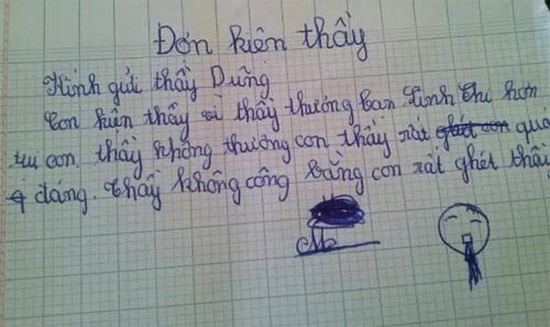 Đơn kiện thầy
Kính gửi thầy Dũng
Con kiện thầy vì thầy thương bạn Linh Chi hơn
thầy không thương con thầy rất quá
đáng. thầy không công bằng con rất ghét thầy